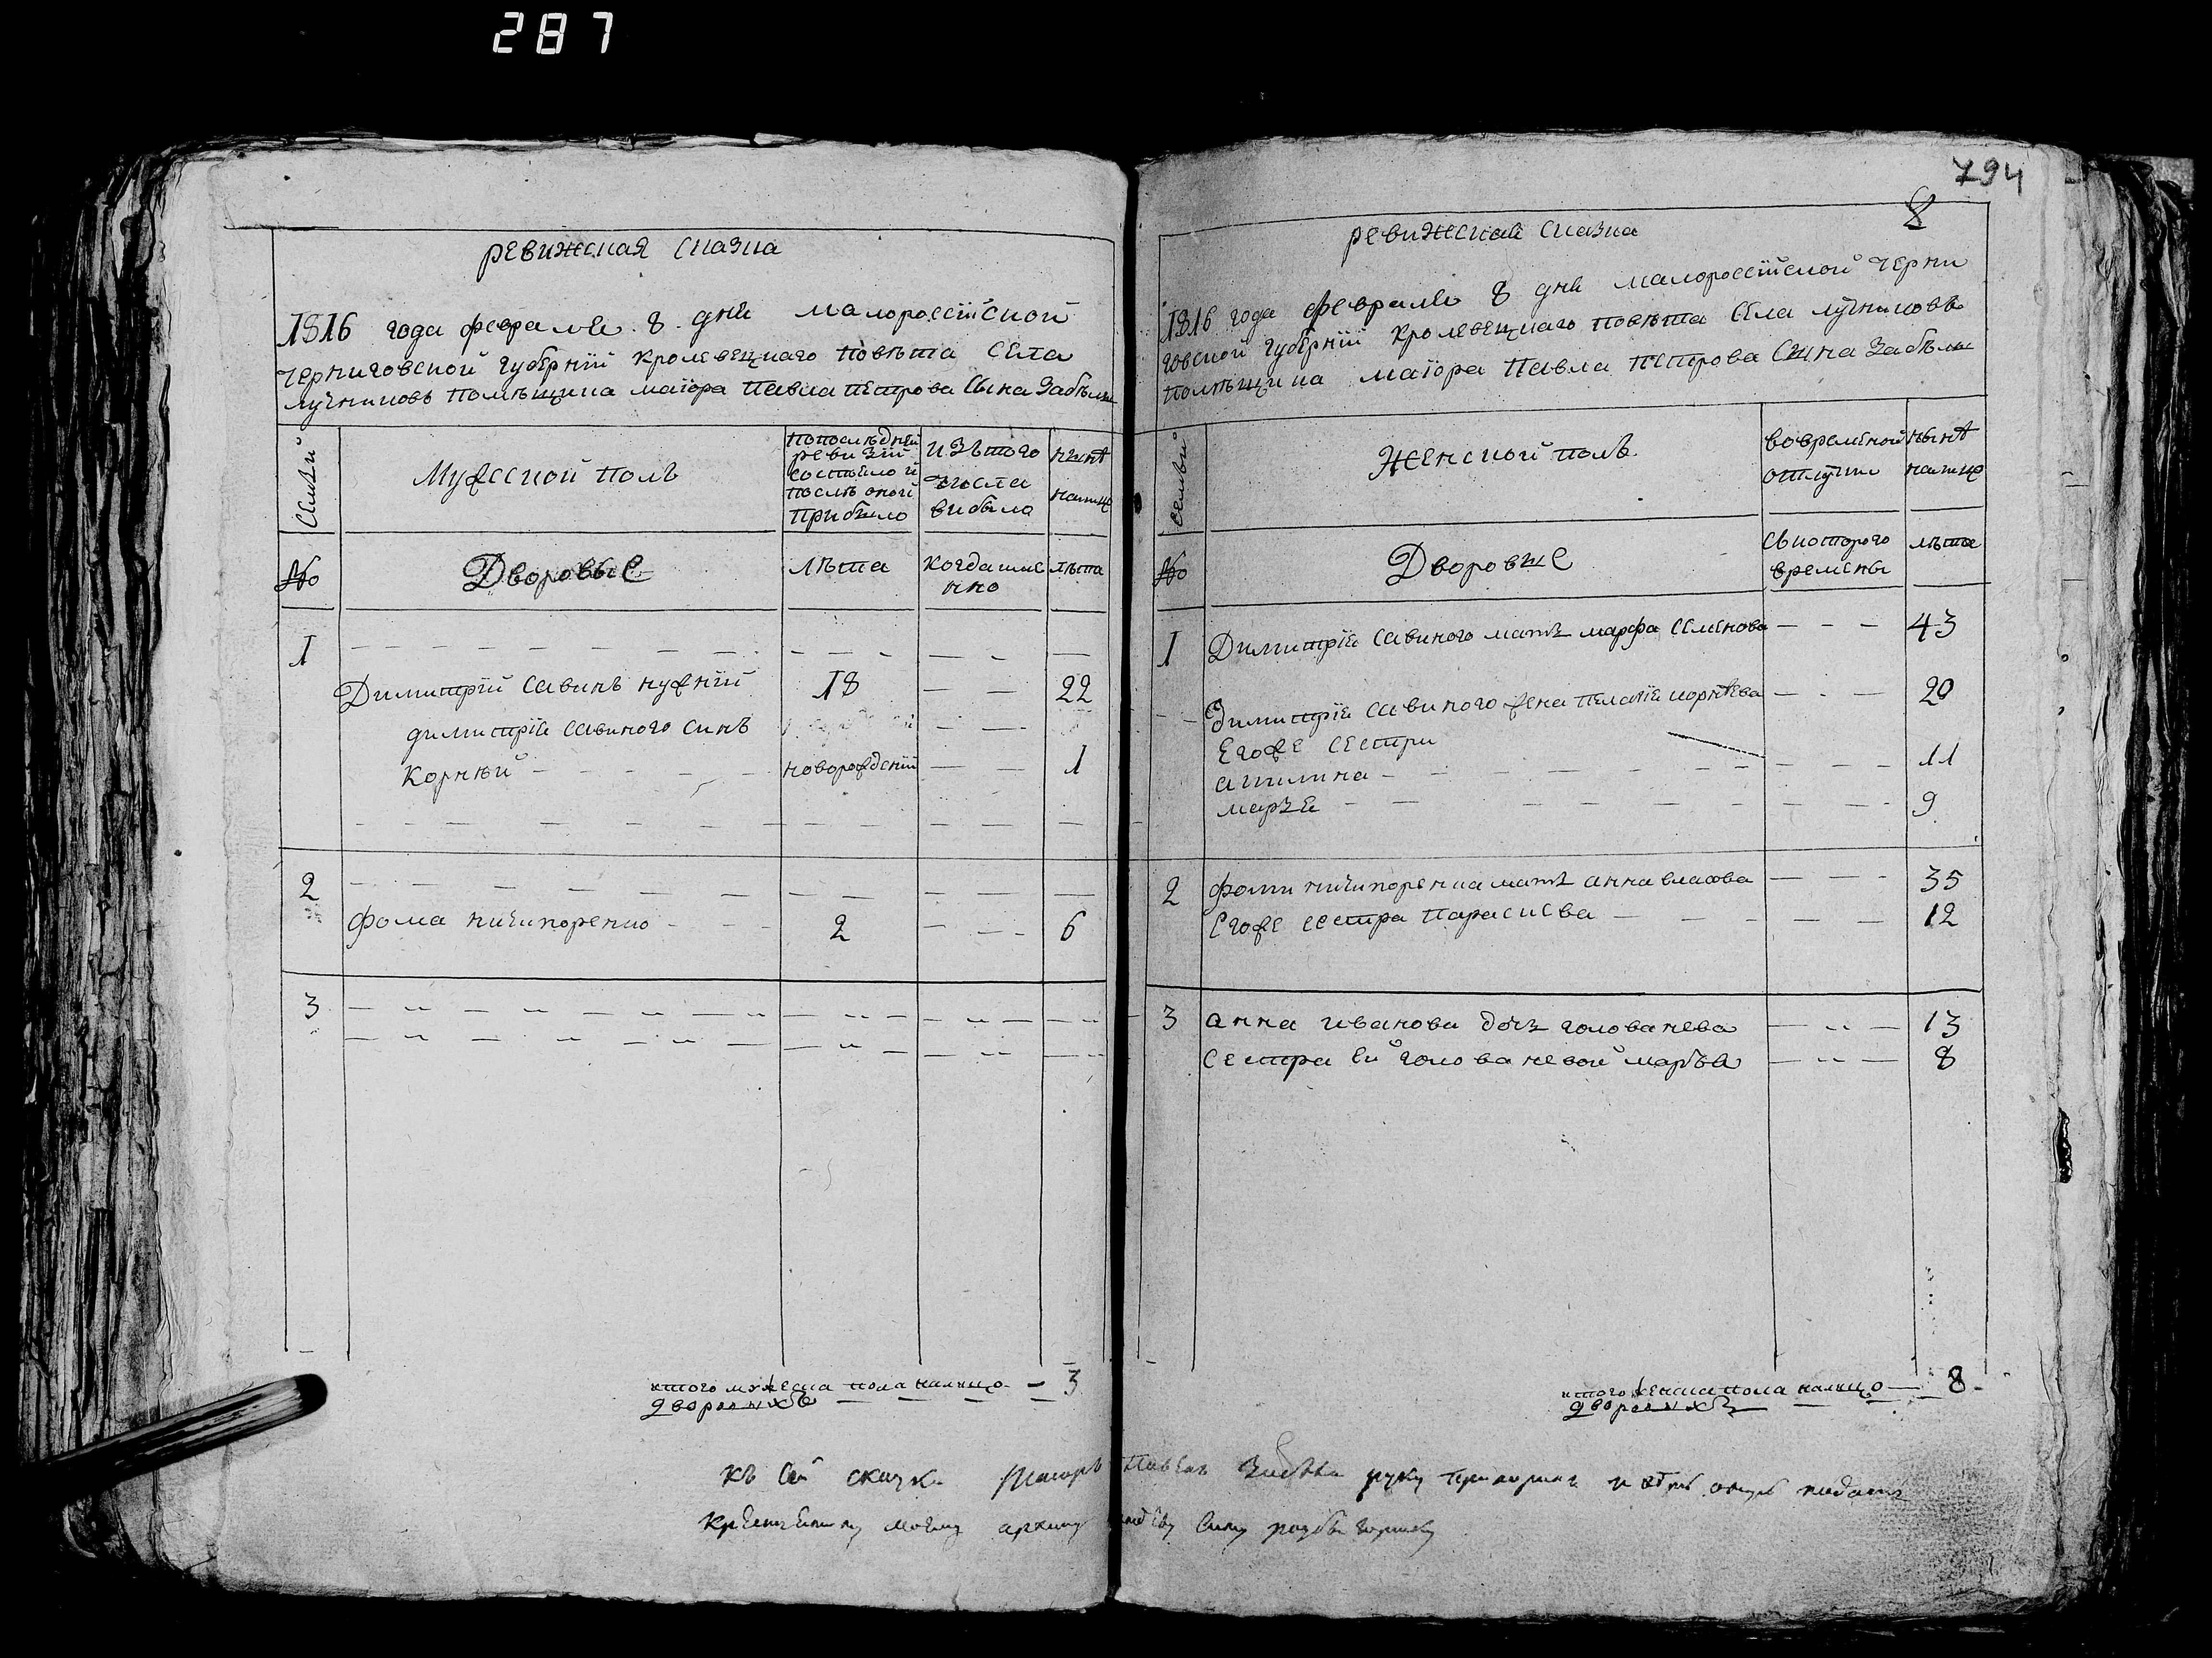 287
794
8
ревижская сказка
1816 года февраля 8 дня малороссійской
черниговской губерніи кролевецкаго повѣта села
лучниковъ помѣщика маіора павла петрова сына забѣлы
семьи
Мужеской полъ
попослѣдней
ревизіи
состояло и
послѣ оной
прибыло
изътого
числа
выбыло
нынѣ
налицо
№
Дворовые
лѣта
когда име
нно
лѣта
1
Димитрій савинъ нужній
18
22
димитрія савиного синъ
Корнѣй
новорожденій
1
2
Фома ничипоренко
2
6
3
итого мужеска пола налицо 3
дворовихъ
ревижская сказка
1816 года февраля 8 дня малороссійской черни
говской губерніи кролевецкаго повѣта села лучниковъ
помѣщика маіора павла петрова сына забѣлы
семьи
Женской полъ
вовременной
отлучки
нынѣ
налицо
№
Дворовые
съкоторого
времены
лѣта
1
Димитрія савиного мать марфа семенова
43
димитрія савиного жена пелагія корнѣева
20
Егоже сестри
акилина
11
марья
9
2
фоми ничипоренка мать анна власова
35
Егоже сестра парасковя
12
3
анна иванова дочь голованева
13
Сестра ей голованевой марья
8
итого женска пола налицо 8
дворовихъ
Къ сей сказки Маіоръ Павелъ Забѣла руку приложилъ и подать
моему сину